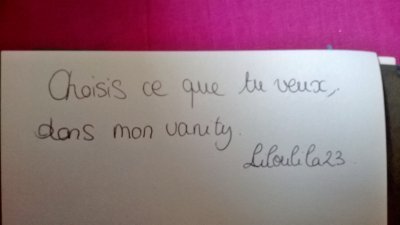 Choisis ce que tu veux,
dans mon vanity.
Liloulila23.